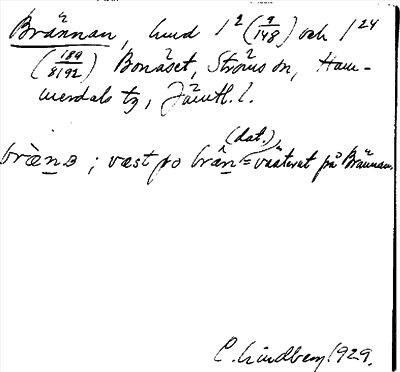 Brännan, hmd 1² (9/148) och 1²⁴
(189/8192) Bonäset, Ströms sn, Ham-
merdals tg, Jämtl. l.
(dat.)
bràǹə ; væst po brân̲ = västerut på Brännan.
C. Lindberg 1929.